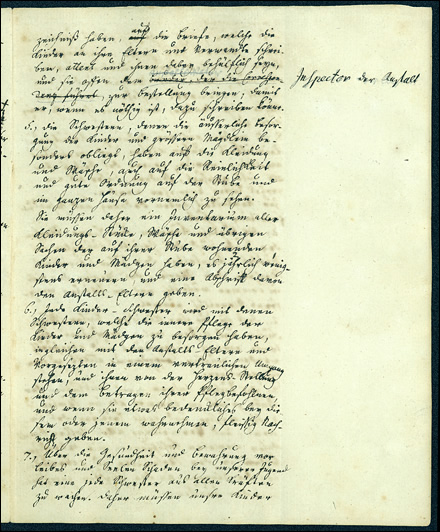 zeichniß haben, auf die Briefe, welche die
Kinder an ihre Eltern und Verwandte schrei-
ben, alles und ihnen dabey behülflich seyn,
und sie offen dem
zur Bestellung bringen, damit
er, wenn es nöthig ist, dazu schreiben könne.
Inspector der Anstalt
5., die Schwestern, denen die äusserliche Besor-
gung der Kinder und grössern Mägdlein be-
sonders obliegt, haben auf die Kleidung
und Wäsche, auch auf die Reinlichkeit
und gute Ordnung auf der Stube und
im ganzen Hause vornemlich zu sehen.
Sie müssen daher ein Inventarium aller
Kleidungs-Stücke, Wäsche und übrigen
Sachen der auf ihrer Stube wohnenden
Kinder und Mädgen haben, es jährlich wenig-
stens erneuern, und eine Abschrift davon
den Anstalts-Eltern geben.
6., Jede Kinder-Schwester wird mit denen
Schwestern, welche die innere Pflege der
Kinder und Mädgen zu besorgen haben,
ingleichen mit den Anstalts Eltern und
Vorgesezten in einem vertraulichen Umgang
stehen, und ihnen von der Herzens-Stellung
und dem Betragen ihrer Pflegbefohlnen,
und wenn sie etwas bedenkliches bey die-
sem oder jenem wahrnehmen, fleißig Nach-
richt geben.
7., Über die Gesundheit und Bewahrung vor
Leibes und Seelen Schaden bey unsrer Jugend
hat eine jede Schwester aus allen Kräften
zu wachen. Daher müssen unsre Kinder